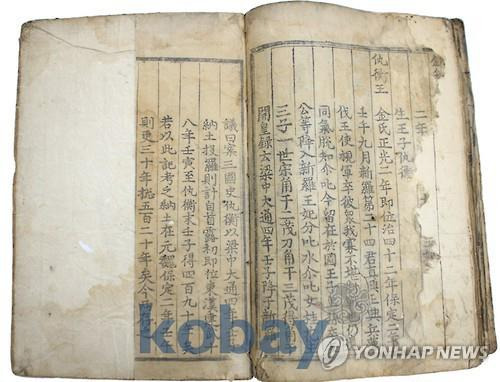 二年
生王子仇衡
仇衡王
金氏正光二年即位治四十二年保定二年
壬午九月新羅第二十四君真興王興兵薄
伐王使親軍卒彼衆我寡不堪對戰也仍
同氣脫知尒叱今留在於國王子上孫
公等降入新羅王妃分叱水尒叱女桂
三子一世宗角干二茂刀角干三茂得
開皇錄云梁中大通四年壬子降于新
議曰案三國史仇衡以梁中大通四
納土投羅則計自首露初即位東漢建
八年壬寅至仇衡末壬子得四百九十
若以此記考之納土在元魏保定二年
則更三十年揔五百二十年矣今
kobay
YONHAP NEWS